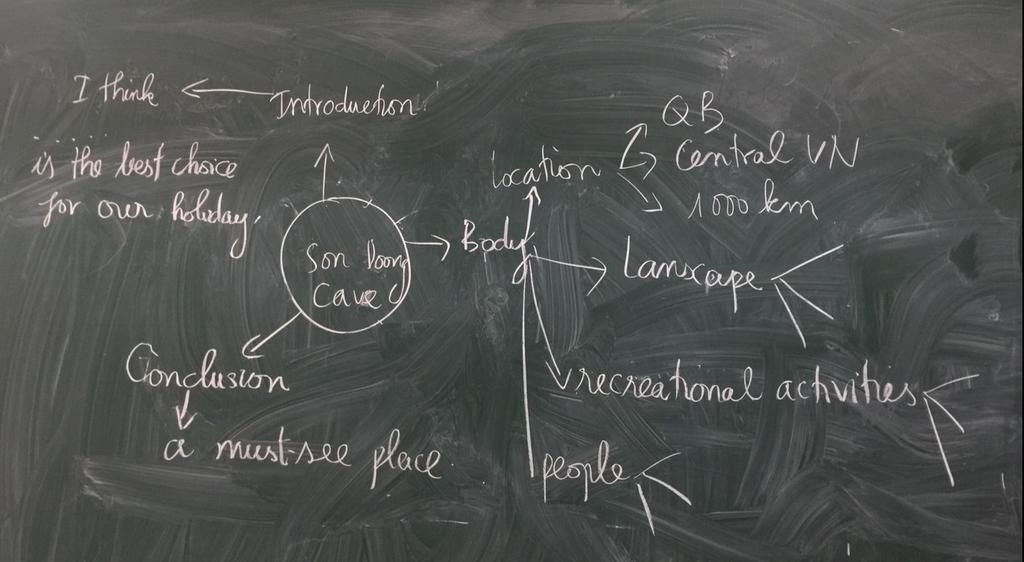 I think
Introduction
is the best choice
for our holiday.
Son Doong
Cave
Body
Location
QB
Central VN
1000 km
Lanscape
recreational activities
people
Conclusion
a must-see place